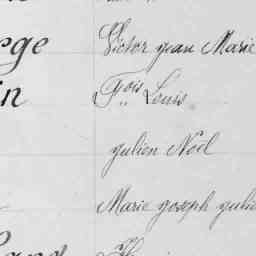 rge Victor jean Marie
in Fçois Louis
julien Noël
Marie joseph julie